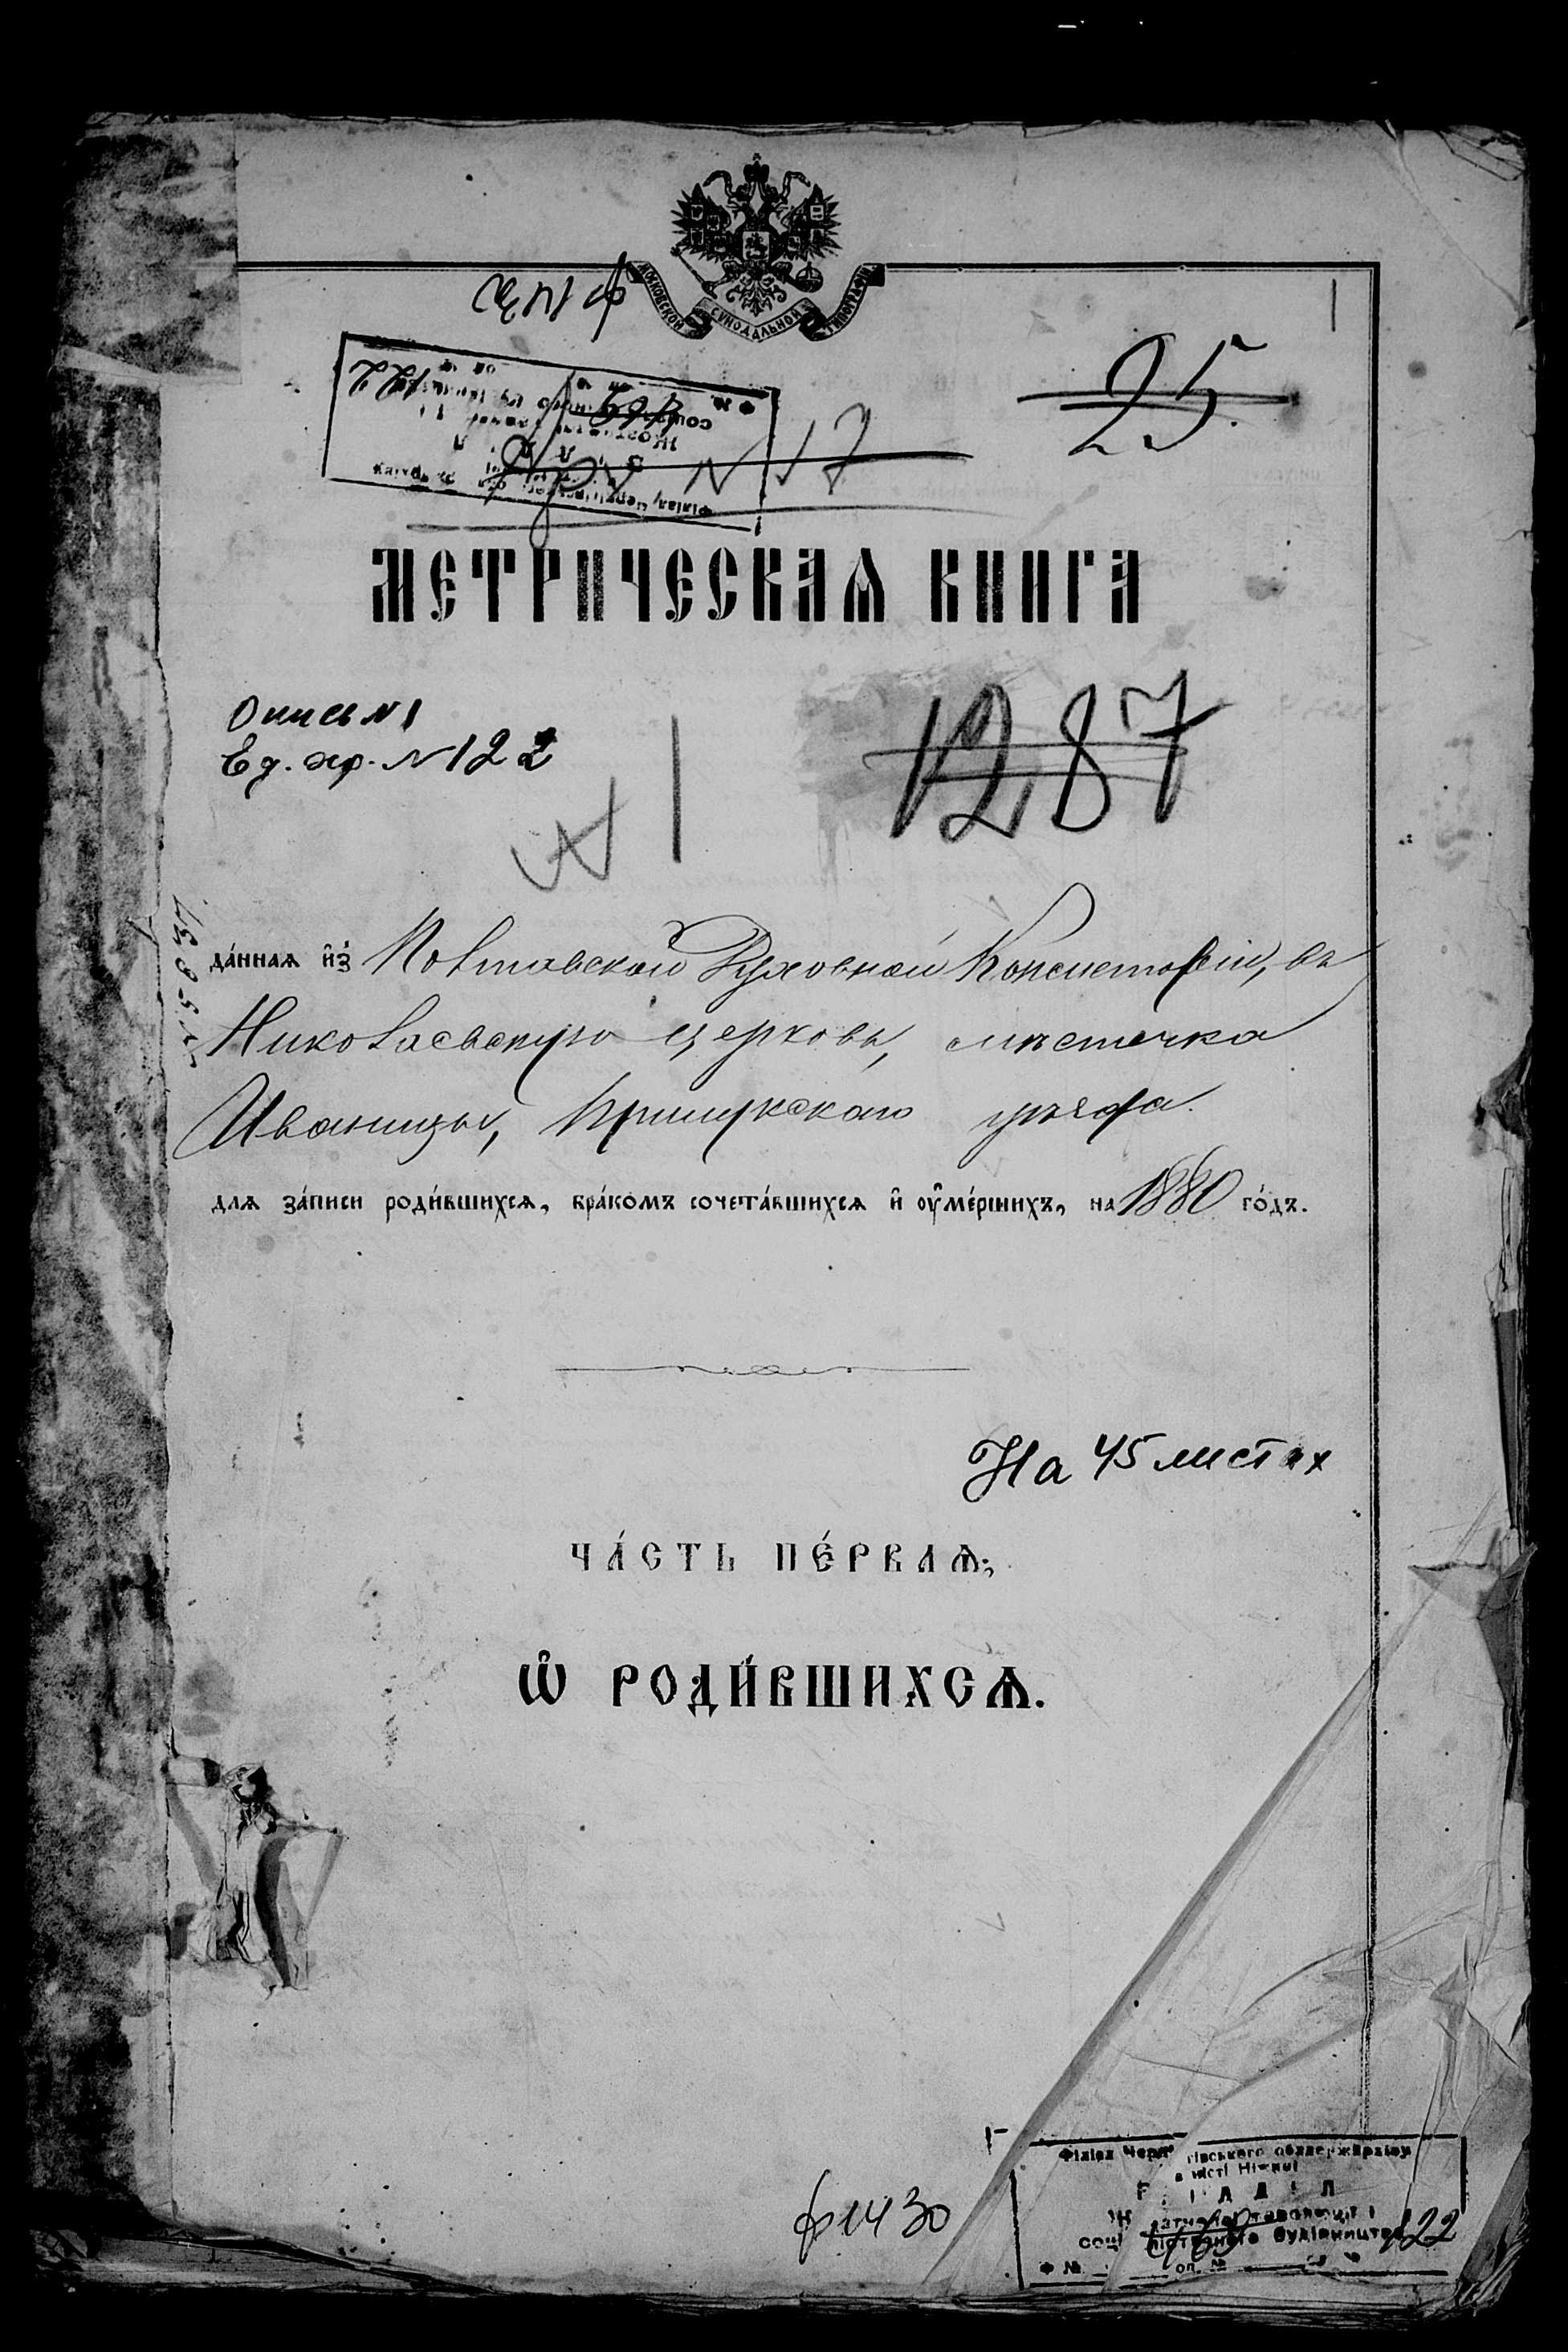 МОСКОВСКОЙ СѴНОДАЛЬНОЙ ТИПОГРАФІИ
1
25.
N 17
МЕТРИЧЕСКАѦ КНИГА
Опись N 1
Ед. хр. N 122
1287
да́ннаѧ и҆з̾ Полтавской Духовной Консисторіи, въ
Николаевскую церковь, мѣстечка
Иваницы, Прилукскаго уѣзда.
длѧ за́писи роди́вшихсѧ, бра́комъ сочета́вшихсѧ и҆ ᲂу҆ме́ршихъ, на 1880 го́дъ.
На 45 листах
ЧА́СТЬ ПЕ́РВАѦ;
Ѡ҆ РОДИ́ВШИХСѦ.
ф 1430
Філіал Чернігівського облдержархіву
в місті Ніжині
соціалістичного будівництва
122
Ф № оп. №